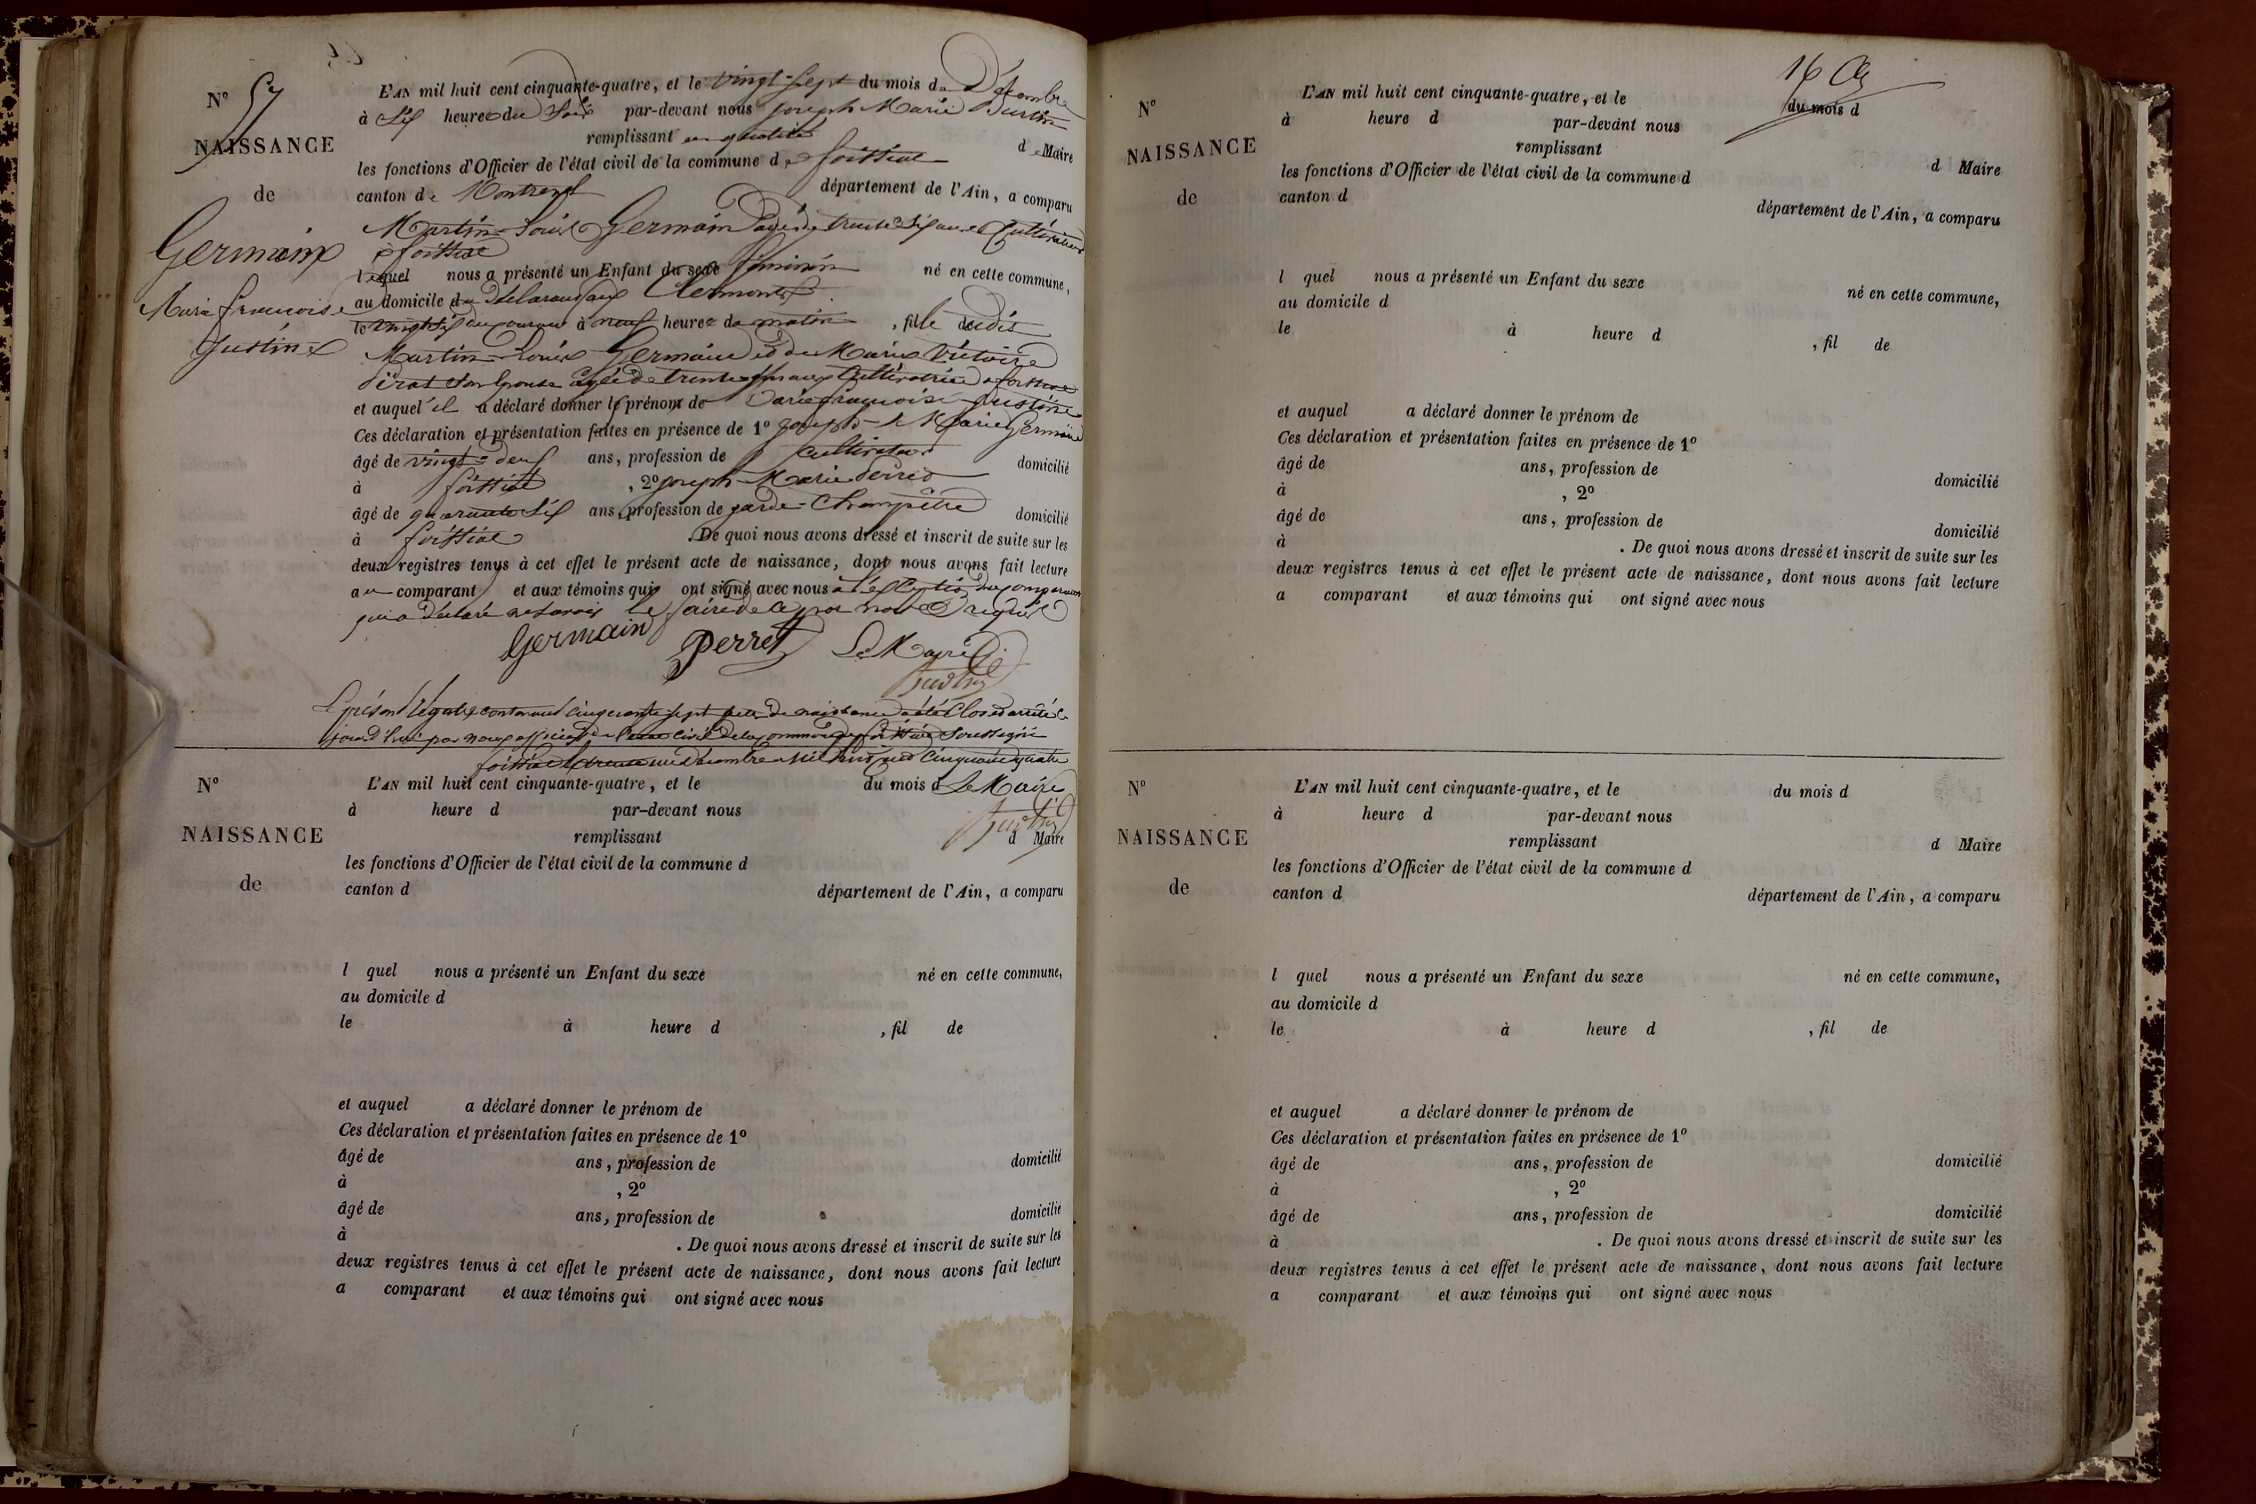 N° 57
NAISSANCE
de
Germain
Marie françoise
Justine
L'AN mil huit cent cinquante-quatre, et le vingt-sept du mois de Décembre
à Six heures du Soir par-devant nous joseph Marie
remplissant en qualité de Maire
les fonctions d'Officier de l'état civil de la commune de foissiat
canton de Montrevel département de l'Ain, a comparu
Martin Louis Germain agé de trente Six ans Cultivateur
a foissiat
lequel nous a présenté un Enfant du sexe féminin né en cette commune,
au domicile du Déclarant aux Clermonts
le vingt Six du courant à neuf heures du matin, fille dudit
Martin Louis Germain et de Marie Victoire
Son Epouse Agée de trente ans Cultivatrice a foissiat
et auquel il a déclaré donner le prénom de Marie françoise Justine
Ces déclaration et présentation faites en présence de 1° joseph Marie Germain
âgé de vingt-deux ans, profession de Cultivateur domicilié
à foissiat, 2° joseph Marie Perret
âgé de quarante Six ans, profession de garde-Champêtre domicilié
à foissiat. De quoi nous avons dressé et inscrit de suite sur les
deux registres tenus à cet effet le présent acte de naissance, dont nous avons fait lecture
au comparant et aux témoins qui ont signé avec nous à l'exception du comparant
qui a déclaré ne savoir le faire de ce par nous requis
Germain Perret Le Maire
Le présent Régistre contenant cinquante sept actes de naissance a été Clos et arrêté ce
jour d'hui par nous officier de l'état civil de la commune de foissiat Soussigné
foissiat le trente un décembre mil huit cent cinquante quatre
Le Maire
N°
NAISSANCE
de
L'AN mil huit cent cinquante-quatre, et le du mois d
à heure d par-devant nous
remplissant d Maire
les fonctions d'Officier de l'état civil de la commune d
canton d département de l'Ain, a comparu
l quel nous a présenté un Enfant du sexe né en cette commune,
au domicile d
le à heure d , fil de
et auquel a déclaré donner le prénom de
Ces déclaration et présentation faites en présence de 1°
âgé de ans, profession de domicilié
à , 2°
âgé de ans, profession de domicilié
à . De quoi nous avons dressé et inscrit de suite sur les
deux registres tenus à cet effet le présent acte de naissance, dont nous avons fait lecture
a comparant et aux témoins qui ont signé avec nous
16
N°
NAISSANCE
de
L'AN mil huit cent cinquante-quatre, et le du mois d
à heure d par-devant nous
remplissant d Maire
les fonctions d'Officier de l'état civil de la commune d
canton d département de l'Ain, a comparu
l quel nous a présenté un Enfant du sexe né en cette commune,
au domicile d
le à heure d , fil de
et auquel a déclaré donner le prénom de
Ces déclaration et présentation faites en présence de 1°
âgé de ans, profession de domicilié
à , 2°
âgé de ans, profession de domicilié
à . De quoi nous avons dressé et inscrit de suite sur les
deux registres tenus à cet effet le présent acte de naissance, dont nous avons fait lecture
a comparant et aux témoins qui ont signé avec nous
N°
NAISSANCE
de
L'AN mil huit cent cinquante-quatre, et le du mois d
à heure d par-devant nous
remplissant d Maire
les fonctions d'Officier de l'état civil de la commune d
canton d département de l'Ain, a comparu
l quel nous a présenté un Enfant du sexe né en cette commune,
au domicile d
le à heure d , fil de
et auquel a déclaré donner le prénom de
Ces déclaration et présentation faites en présence de 1°
âgé de ans, profession de domicilié
à , 2°
âgé de ans, profession de domicilié
à . De quoi nous avons dressé et inscrit de suite sur les
deux registres tenus à cet effet le présent acte de naissance, dont nous avons fait lecture
a comparant et aux témoins qui ont signé avec nous